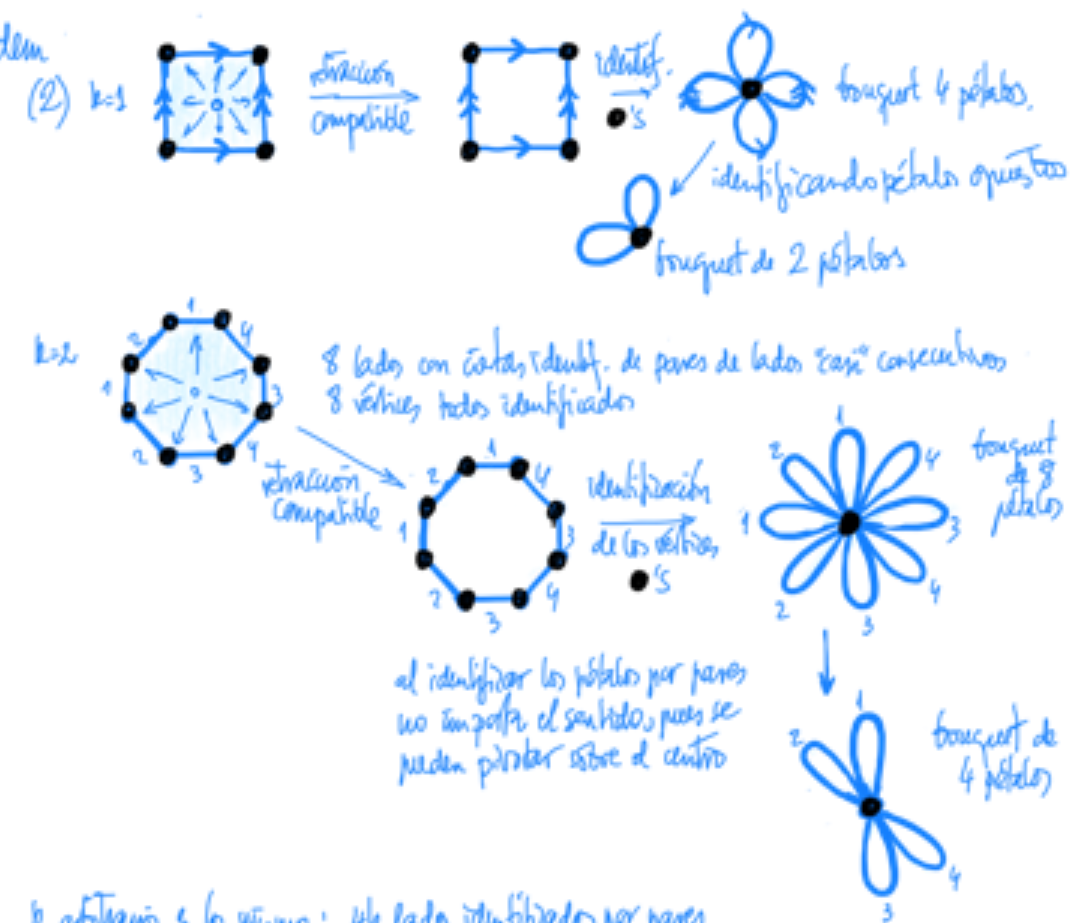 dem
(2) k=1
retracción
compatible
identif.
●'s
bouquet 4 pétalos.
identificando pétalos opuestos
bouquet de 2 pétalos
k=2
1
2
4
1
3
2
3
4
8 lados con identif. de pares de lados "casi" consecutivos
8 vértices todos identificados
retracción
compatible
1
2
4
1
3
2
3
4
identificación
de los vértices
●'s
1
2
4
1
3
2
3
4
bouquet
de 8
pétalos
al identificar los pétalos por pares
no importa el sentido, pues se
pueden pivotar sobre el centro
1
2
4
3
bouquet de
4 pétalos
k arbitrario es lo mismo: 4k lados identificados por pares